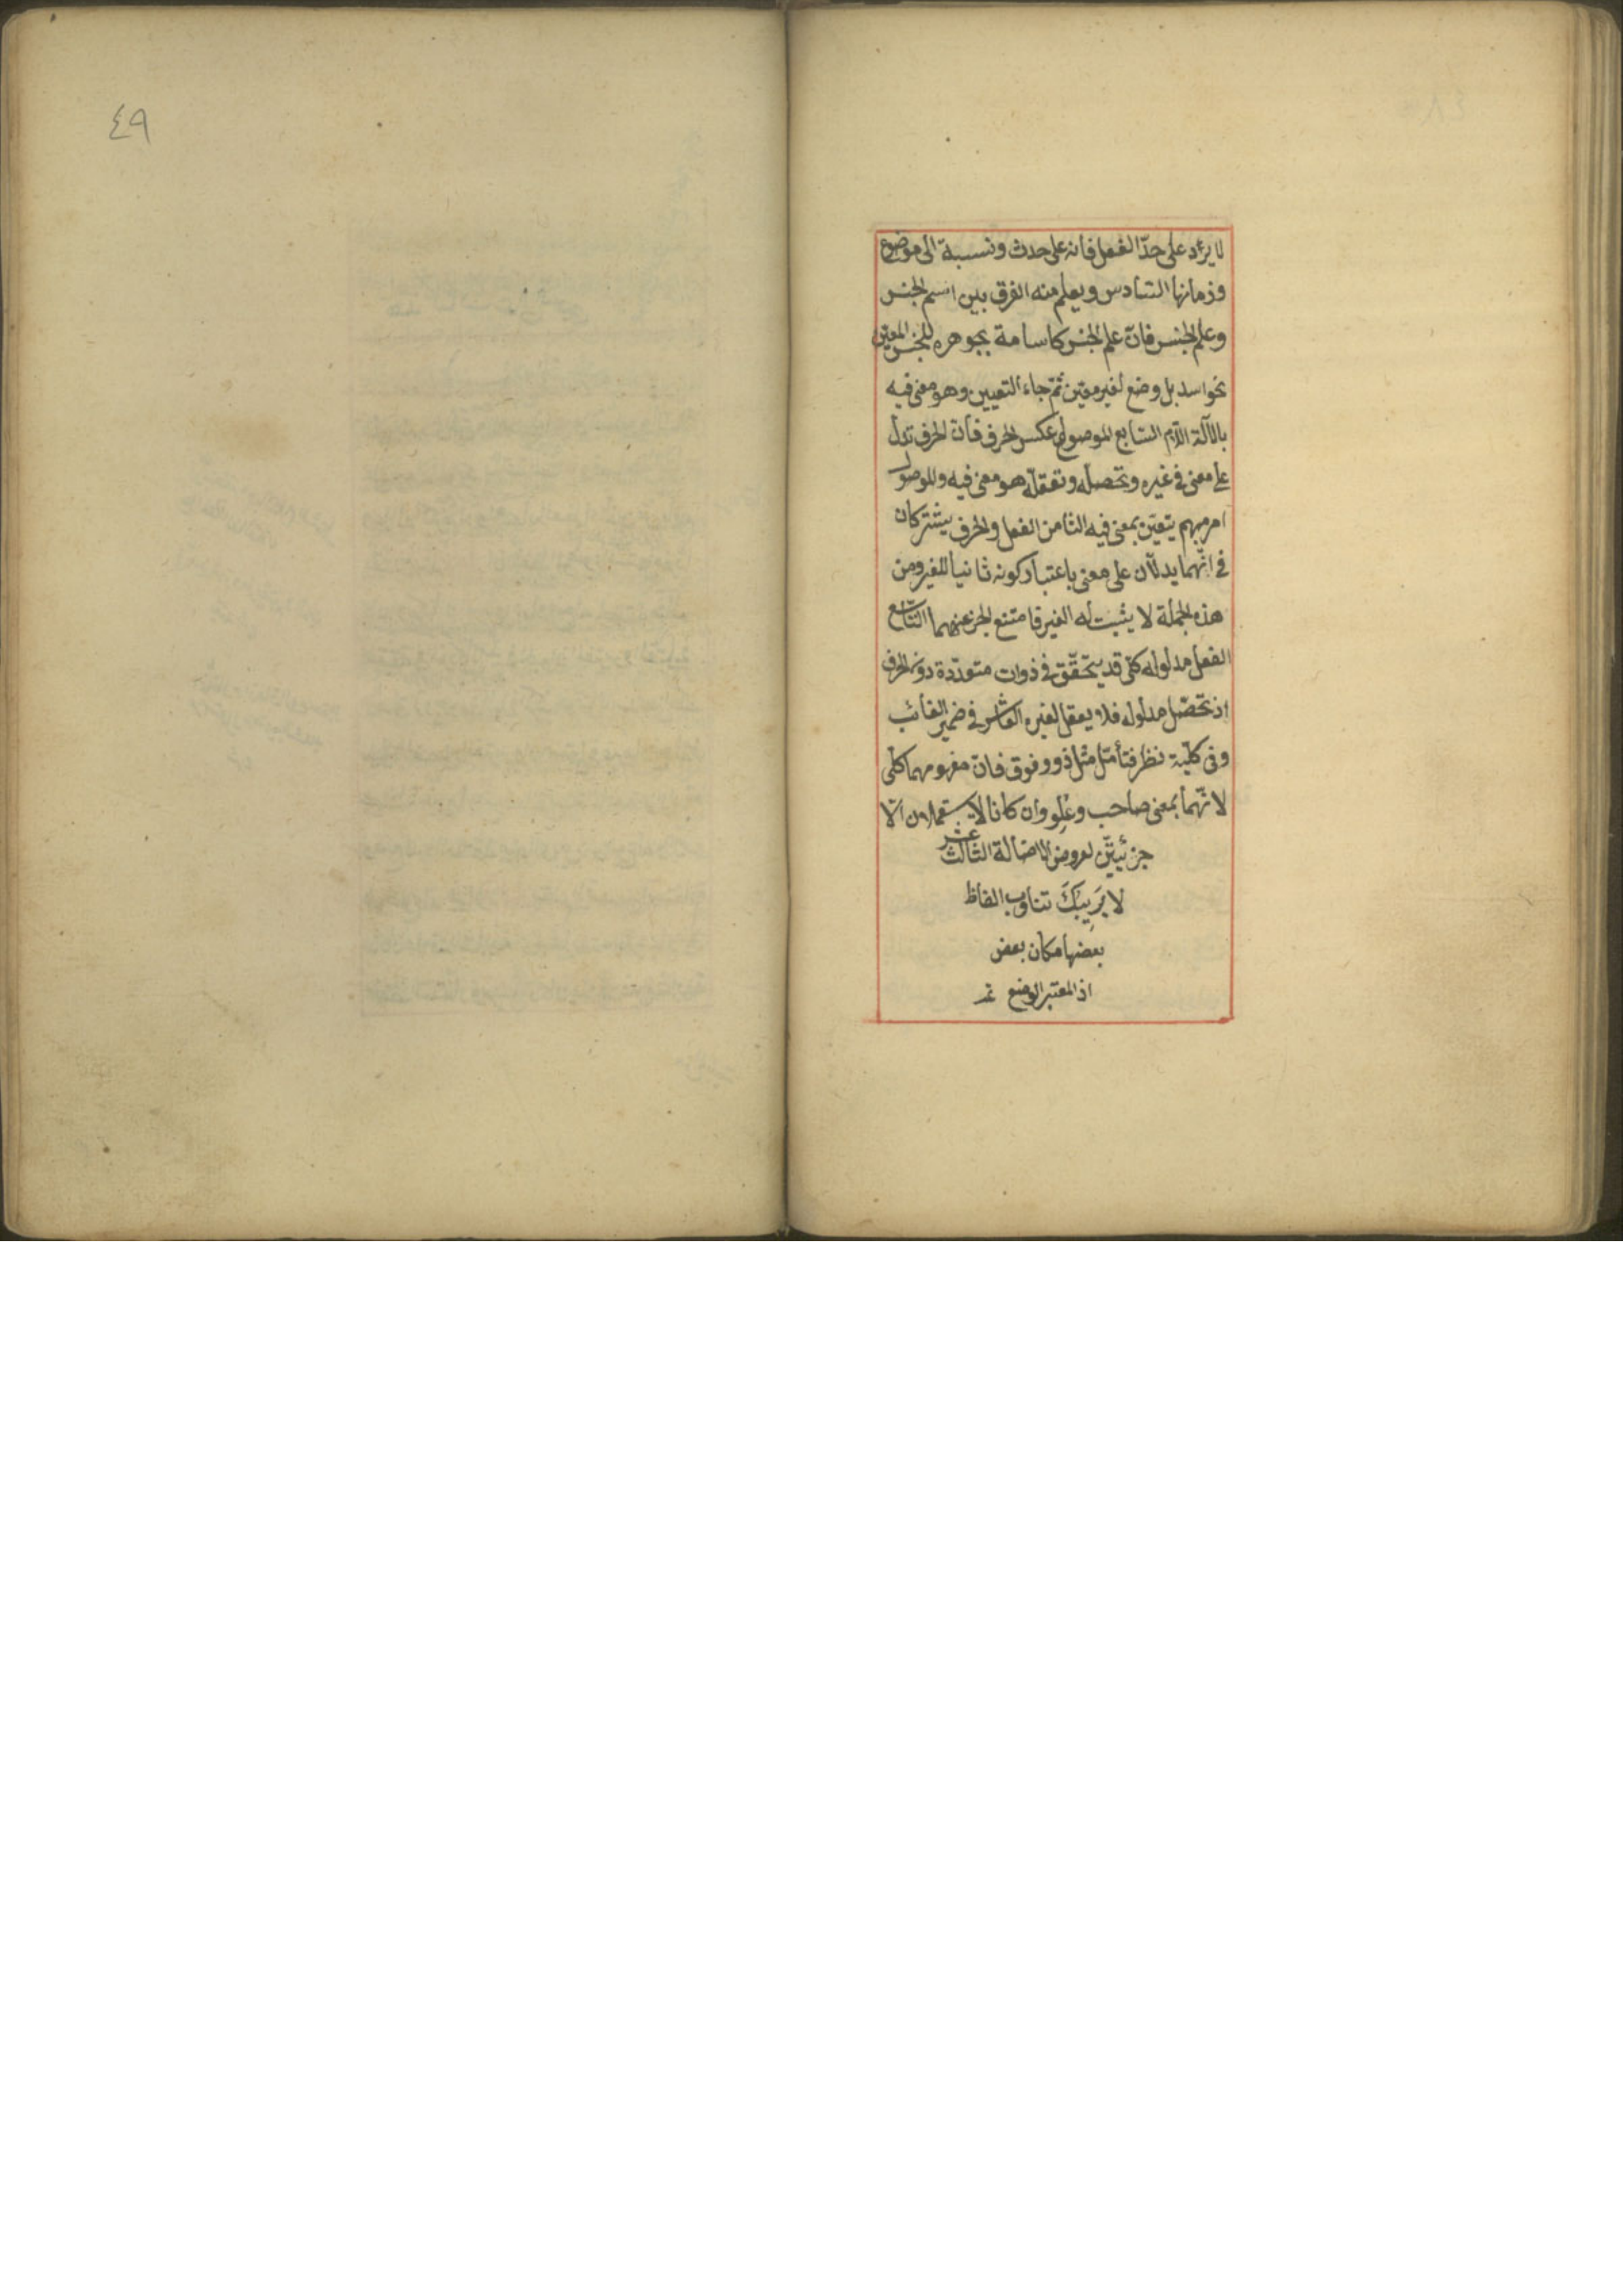 لا يرد على حدّ الفعل فانه على حدث ونسبة الى موضوع
وزمانها السّادس ويعلم منه الفرق بين اسم الجنس
وعلم الجنس فانّ علم الجنس كاسامة بجوهره للجنس المعيّن
نحو اسد بل وضع لغير معيّن ثمّ جاء التعيين وهو معنى فيه
بالآلة اللّام السّابع الموصول عكس الحرف فانّ الحرف تدلّ
على معنى في غيره وتحصله وتعقّله هو معنى فيه والموصول
امر مبهم يتعيّن بمعنى فيه الثامن الفعل والحرف يشتركان
في انّهما يدلّان على معنى باعتبار كونه ثانيا للغير ومن
هذه الجملة لا يثبت له الغير فامتنع الخبر عنهما التّاسع
الفعل مدلوله كلّى قد يتحقّق في ذوات متعدّدة دون الحرف
اذ تحصّل مدلوله فلا يعقل لغيره العاشر في ضمير الغائب
وفى كلّيته نظر فتأمّل مثل ذو وفوق فانّ مفهومهما كلى
لانّهما بمعنى صاحب وعُلِو وان كانا لا يستعملان الّا
جزئيّين لعروض الاضالة الثالث عشر
لا يَرِيبَكَ تناوب الفاظ
بعضها مكان بعض
اذ المعتبر الوضع تم
٤٩